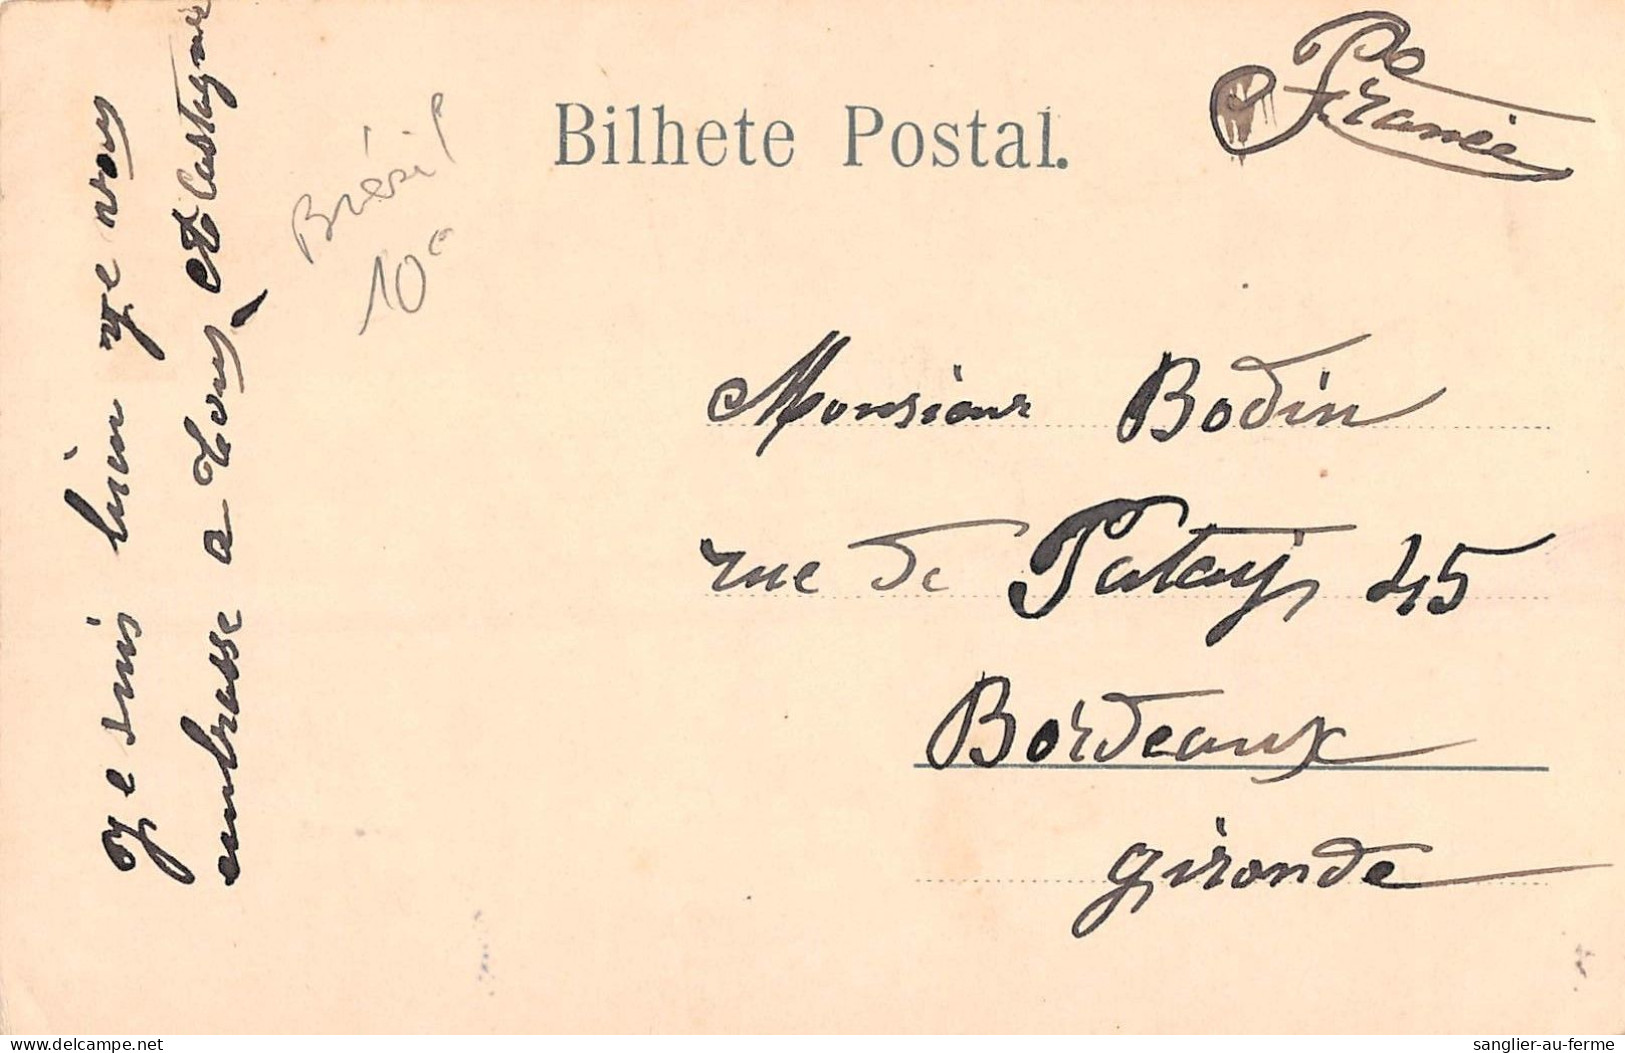 Bilhete Postal.
France
Brésil
10€
Monsieur Bodin
rue de Patay 45
Bordeaux
gironde
Je suis bien je vous
embrasse a tous, et Castagné
delcampe.net
sanglier-au-ferme